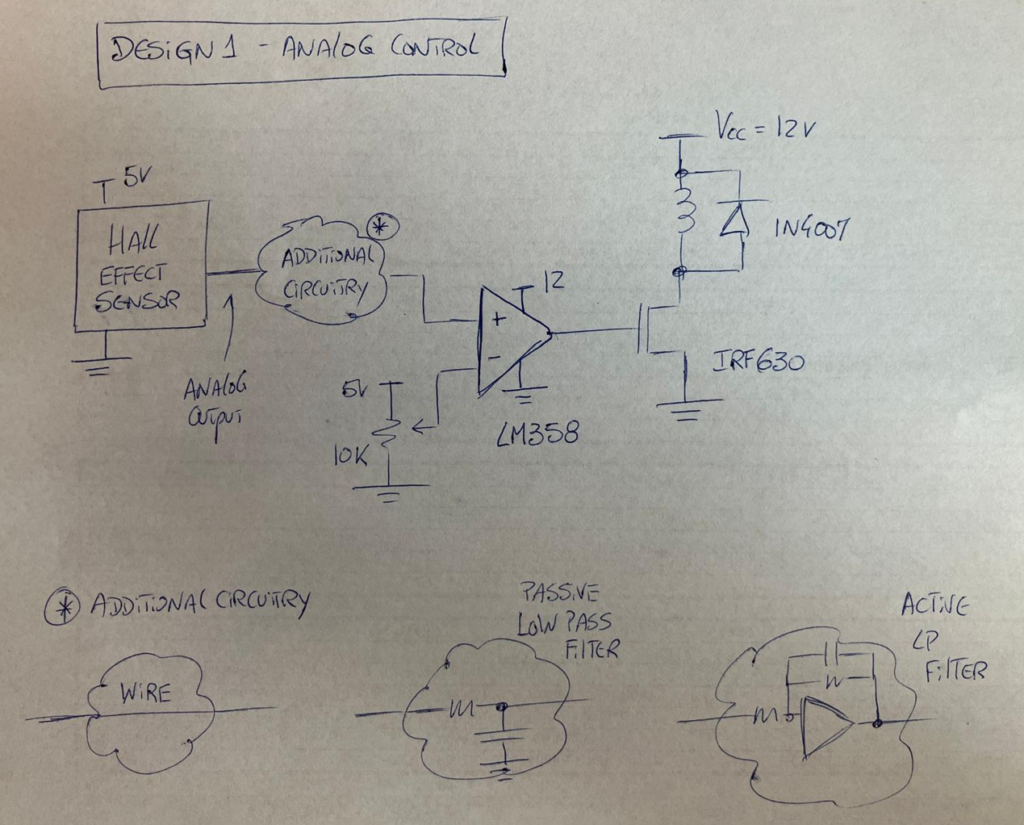 DESIGN 1 - ANALOG CONTROL
Vcc = 12V
5V
HALL
EFFECT
SENSOR
*
ADDITIONAL
CIRCUITRY
1N4007
12
+
-
ANALOG
OUTPUT
5V
10K
LM358
IRF630
* ADDITIONAL CIRCUITRY
WIRE
PASSIVE
LOW PASS
FILTER
ACTIVE
LP
FILTER